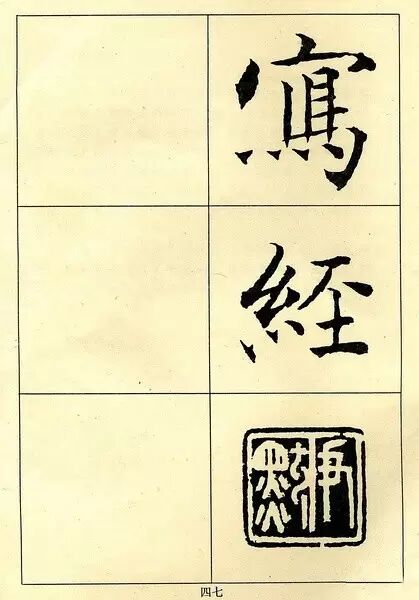 寫
經
四七